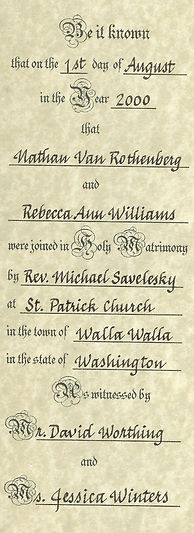 Be it known
that on the 1st day of August
in the Year 2000
that
Nathan Van Rothenberg
and
Rebecca Ann Williams
were joined in Holy Matrimony
by Rev. Michael Savelesky
at St. Patrick Church
in the town of Walla Walla
in the state of Washington
As witnessed by
Mr. David Worthing
and
Ms. Jessica Winters